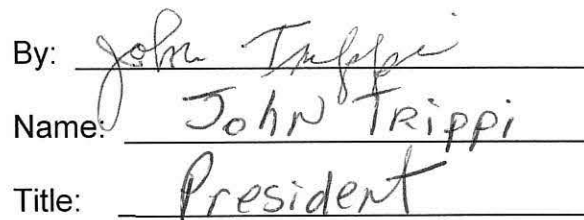 By: John Trippi
Name: John TRippi
Title: President